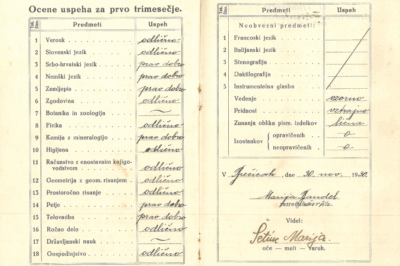 Ocene uspeha za prvo trimesečje.
Predmeti Uspeh
1 Verouk odlično
2 Slovenski jezik odlično
3 Srbo-hrvatski jezik prav dobro
4 Nemški jezik prav dobro
5 Zemljepis prav dobro
6 Zgodovina odlično
7 Botanika in zoologija
8 Fizika odlično
9 Kemija z mineralogijo prav dobro
10 Higijena odlično
11 Računstvo z enostavnim knjigovodstvom odlično
12 Geometrija z geom. risanjem odlično
13 Prostoročno risanje odlično
14 Petje prav dobro
15 Telovadba prav dobro
16 Ročno delo odlično
17 Državljanski nauk
18 Gospodinjstvo odlično
Predmeti Uspeh
Neobvezni predmeti:
1 Francoski jezik
2 Italijanski jezik
3 Stenografija
4 Daktilografija
5 Instrumentalna glasba
Vedenje vzorno
Pridnost vztrajna
Zunanja oblika pism. izdelkov lična
Izostankov opravičenih 0
neopravičenih 0
V dne 30. nov. 19
Marija
razrednik
Videl:
Marija
oče – mati – varuh.